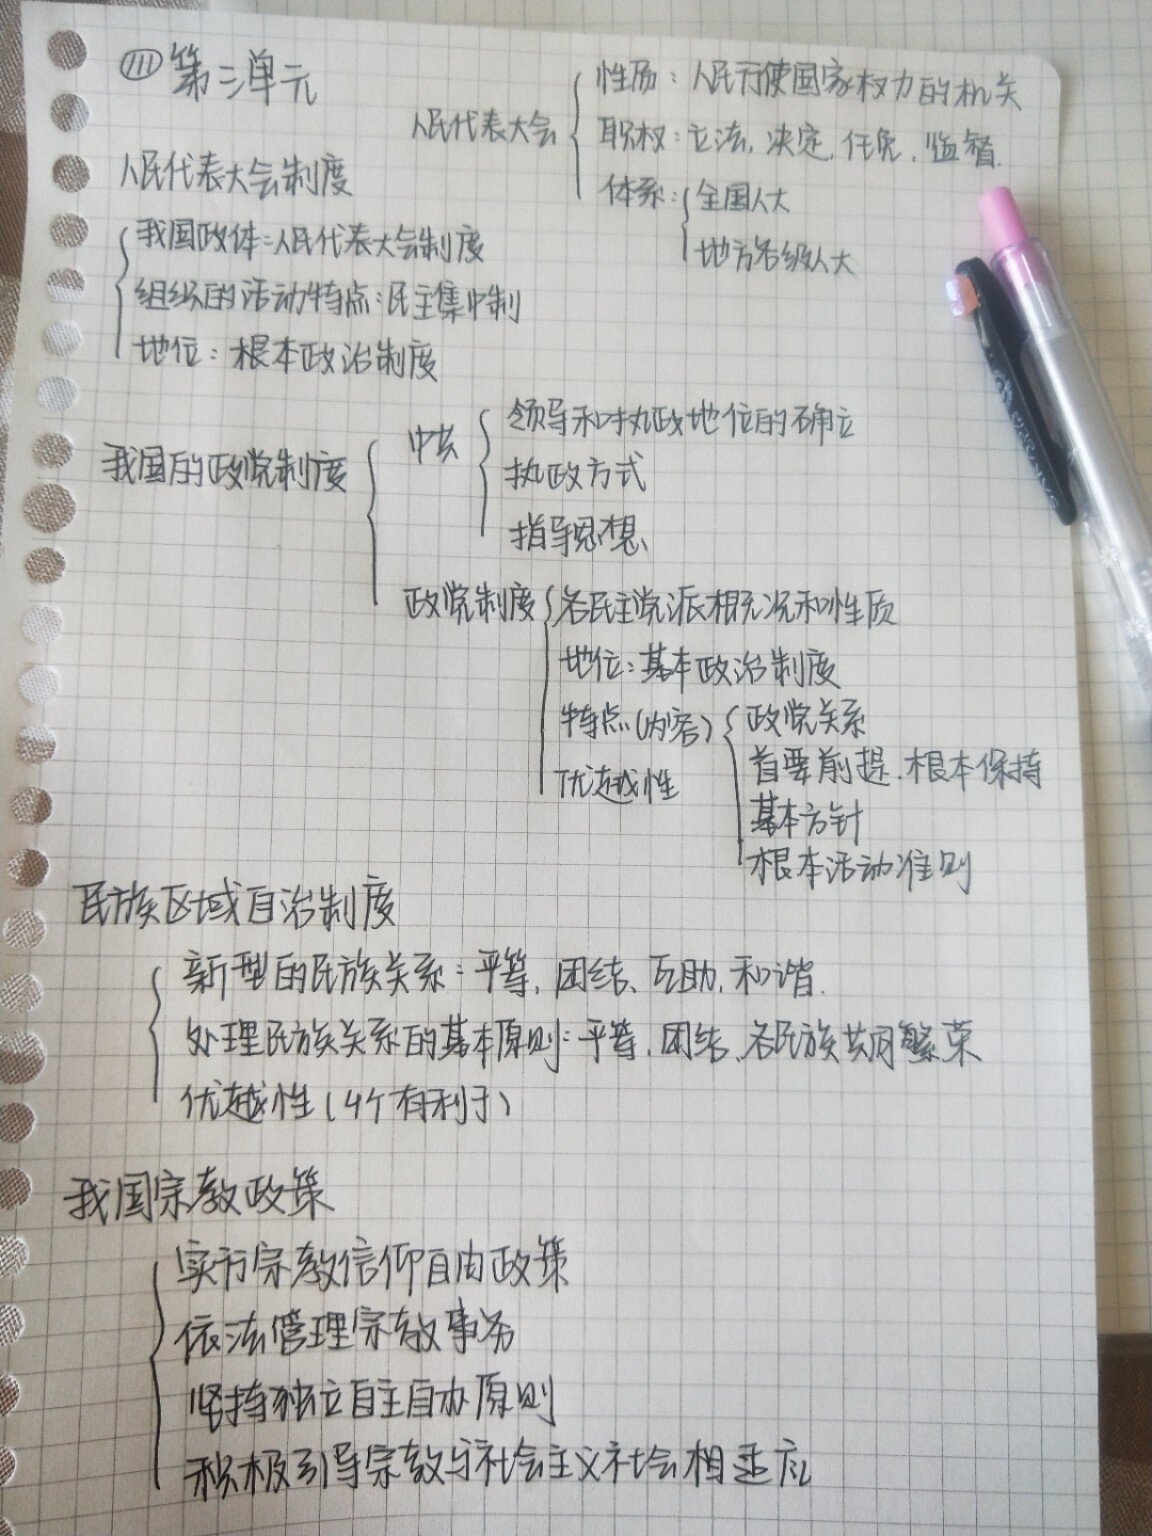 Ⅲ 第三单元
人民代表大会
性质：人民行使国家权力的机关
职权：立法、决定、任免、监督.
体系：
全国人大
地方各级人大
人民代表大会制度
我国政体：人民代表大会制度
组织的活动特点：民主集中制
地位：根本政治制度
我国的政党制度
中共
领导和执政地位的确立
执政方式
指导思想
政党制度
各民主党派概况和性质
地位：基本政治制度
特点（内容）
政党关系
首要前提、根本保持
基本方针
根本活动准则
优越性
民族区域自治制度
新型的民族关系：平等、团结、互助、和谐.
处理民族关系的基本原则：平等、团结、各民族共同繁荣
优越性（4个有利于）
我国宗教政策
实行宗教信仰自由政策
依法管理宗教事务
坚持独立自主自办原则
积极引导宗教与社会主义社会相适应